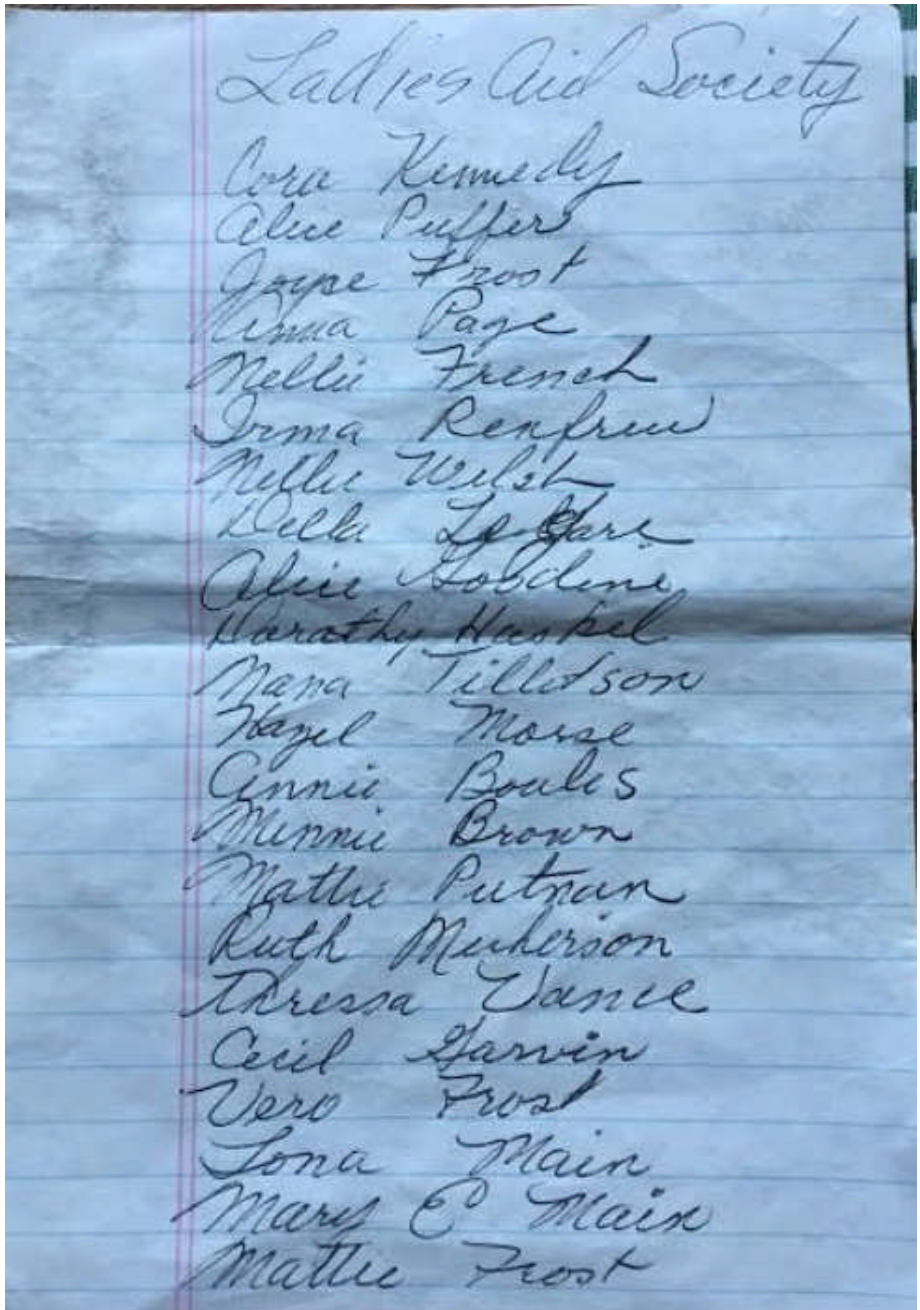 Ladies Aid Society
Cora Kennedy
Alice Puffer
Joyce Frost
Anna Page
Nellie French
Irma Renfrew
Nellie Welsh
Della LeGare
Alice Gobdine
Darathy Haskel
Nana Tillotson
Hazel Morse
Annie Boules
Minnie Brown
Mattie Putnan
Ruth
Thressa Vance
Cecil Garvin
Vero Frost
Lona Main
Mary E Main
Mattie Frost